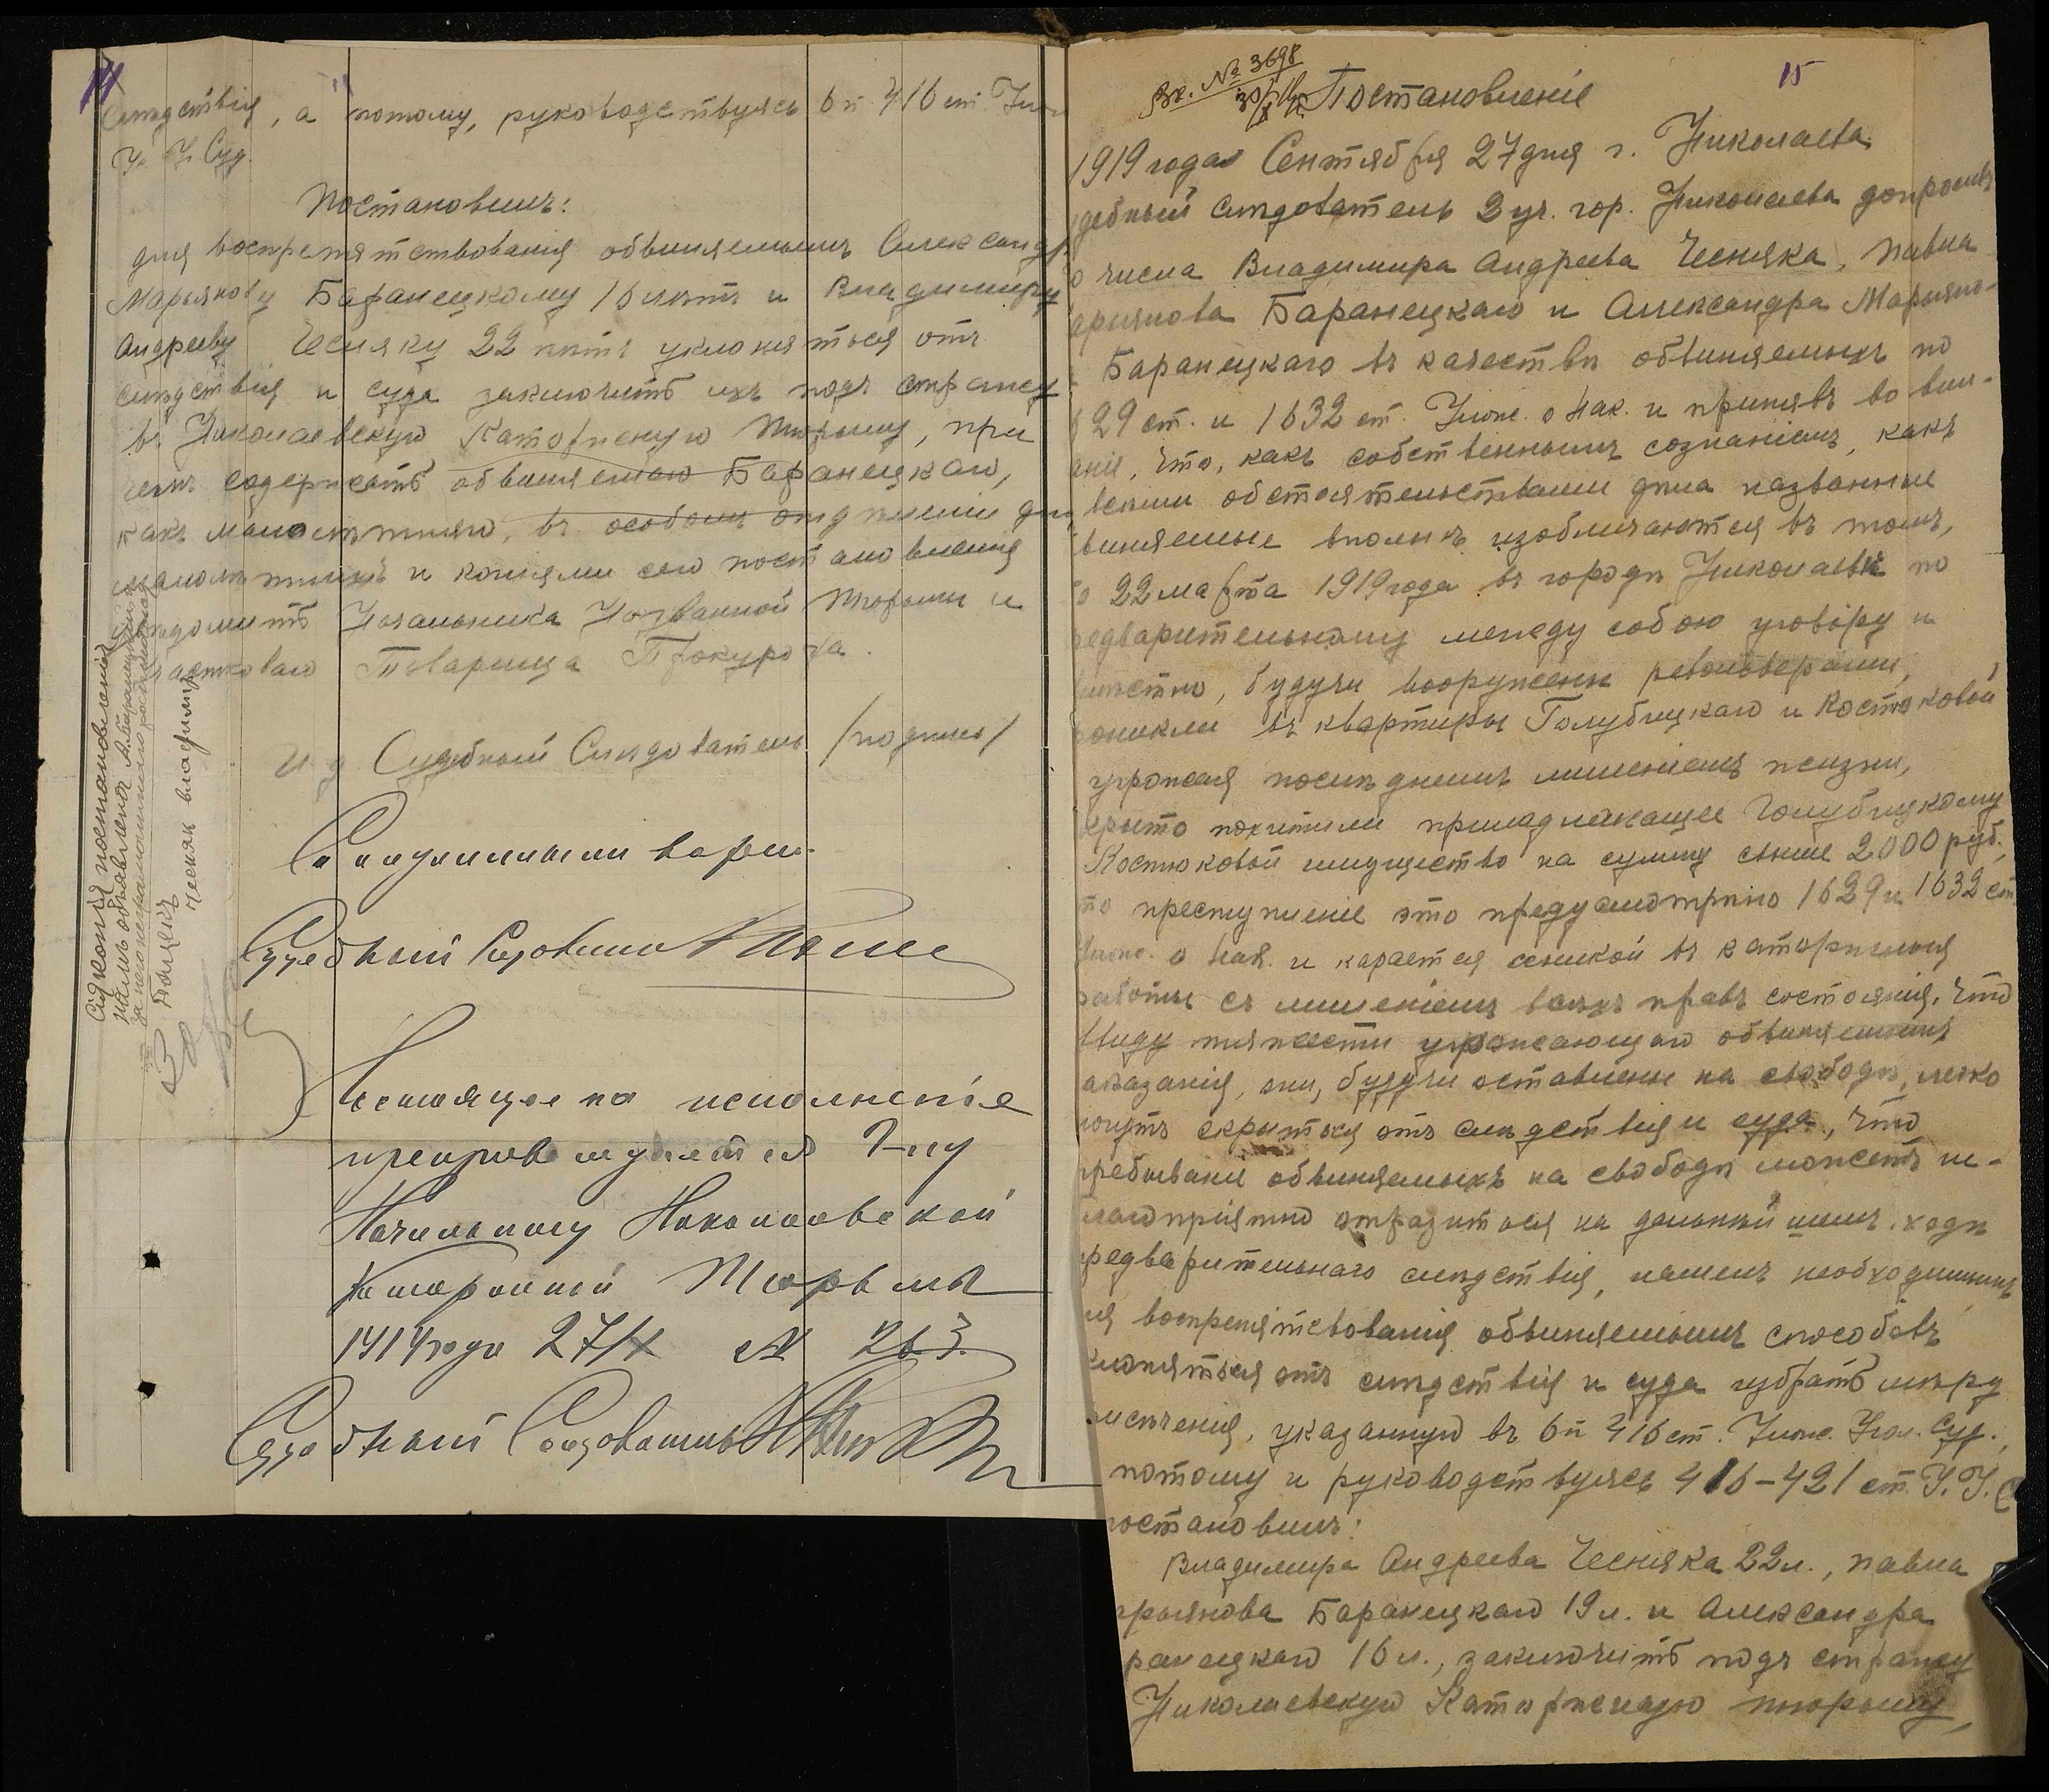 слѣдствія, а потому, руководствуясь 6 п 416 ст. Уст.
У. Суд.
Постановилъ:
для воспрепятствованія обвиняемымъ Александру
Марьянову Баранецкому 16 лѣтъ и Владимиру
Андрееву Чесняку 22 лѣтъ уклоняться отъ
слѣдствія и суда заключить ихъ подъ стражу
въ Николаевскую Каторжную Тюрьму, при
чемъ содержать обвиняемаго Баранецкаго,
какъ малолѣтняго, въ особомъ отдѣленіи для
малолѣтнихъ и копіями сего постановленія
увѣдомить Начальника Названной Тюрьмы и
Участковаго Товарища Прокурора.
И д Судебный Слѣдователь /подпись/
Съ подлиннымъ вѣрно:
Судебный Слѣдователь
Настоящее на исполненіе
препровождается Г-ну
Начальнику Николаевской
Каторжной Тюрьмы
1919 года 27/IX № 263.
Судебный Слѣдователь
Сіи копіи постановленія
намъ объявлена А. Баранецкій а
за него неграмотнаго росписался
Чесняк владимир
14
Вх. № 3698
30/IX 19
15
Постановленіе
1919 года Сентября 27 дня г. Николаева.
удебный Слѣдователь 2 уч. гор. Николаева допросивъ
о числа Владимира Андреева Чесняка, Павла
арьянова Баранецкаго и Александра Марьяно-
Баранецкаго въ качествѣ обвиняемыхъ по
1629 ст. и 1632 ст. Улож. о Нак. и принявъ во вни-
аніе, что, какъ собственнымъ сознаніемъ, какъ
всѣми обстоятельствами дѣла названные
виняемые вполнѣ изобличаются въ томъ,
о 22 марта 1919 года въ городѣ Николаевѣ по
редварительному между собою уговору и
вмѣстно, будучи вооружены револьверами,
роникли въ квартиры Голубицкаго и Костюковой
угрожая послѣднимъ лишеніемъ жизни,
крыто похитили принадлежащее Голубицкому
Костюковой имущество на сумму свыше 2000 руб.,
то преступленіе это предусмотрѣно 1629 и 1632 ст
Улож. о Нак. и карается ссылкой въ каторжныя
работы съ лишеніемъ всѣхъ правъ состоянія, что
виду тяжести угрожающаго обвиняемымъ
аказанія, они, будучи оставлены на свободѣ, легко
могутъ скрыться отъ слѣдствія и суда, что
ребываніе обвиняемыхъ на свободѣ можетъ не-
лагопріятно отразиться на дальнѣйшемъ ходѣ
редварительнаго слѣдствія, нашелъ необходимымъ
ля воспрепятствованія обвиняемымъ способовъ
клоняться отъ слѣдствія и суда избрать мѣру
ресѣченія, указанную въ 6 п 416 ст. Улож. Угол. Суд.,
потому и руководствуясь 416-421 ст. У. У. С
постановилъ:
Владимира Андреева Чесняка 22 л., Павла
арьянова Баранецкаго 19 л. и Александра
ранецкаго 16 л., заключить подъ стражу
Николаевскую Каторжную тюрьму,